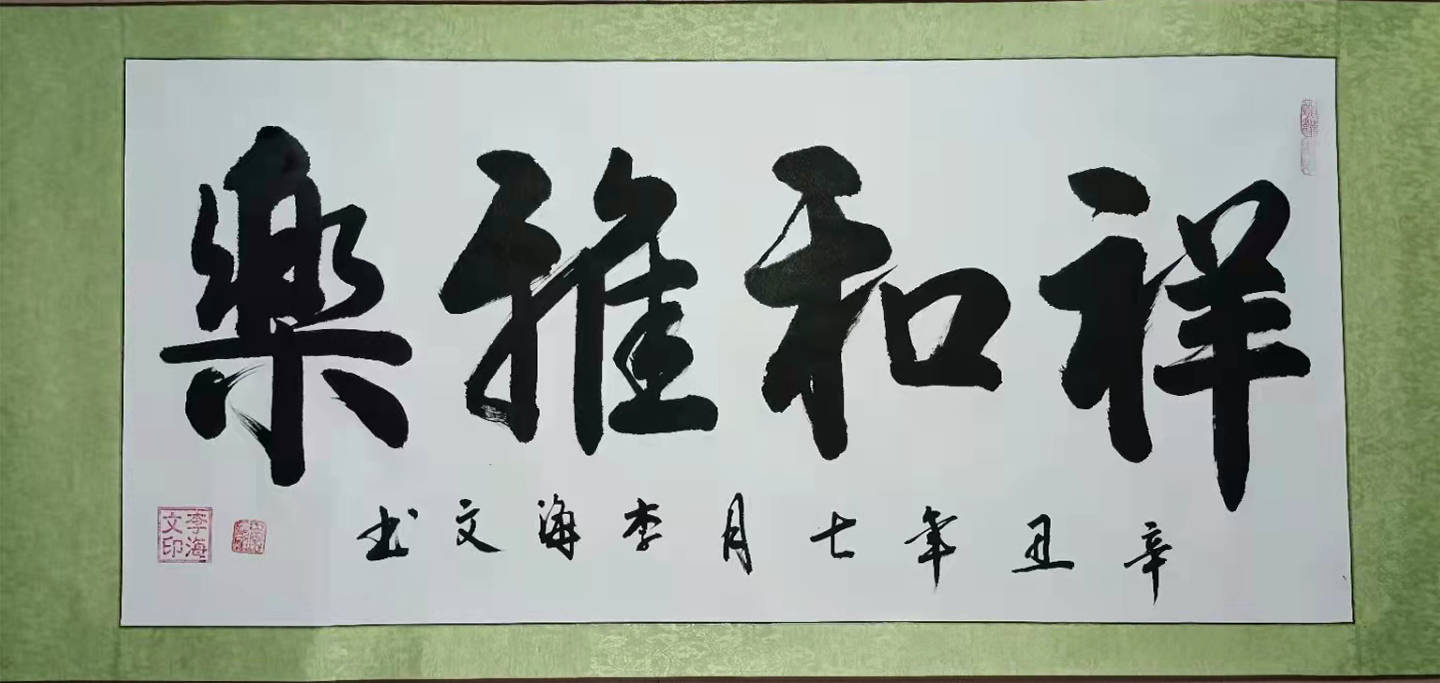 祥和雅樂
辛丑年七月李海文书
李海文印